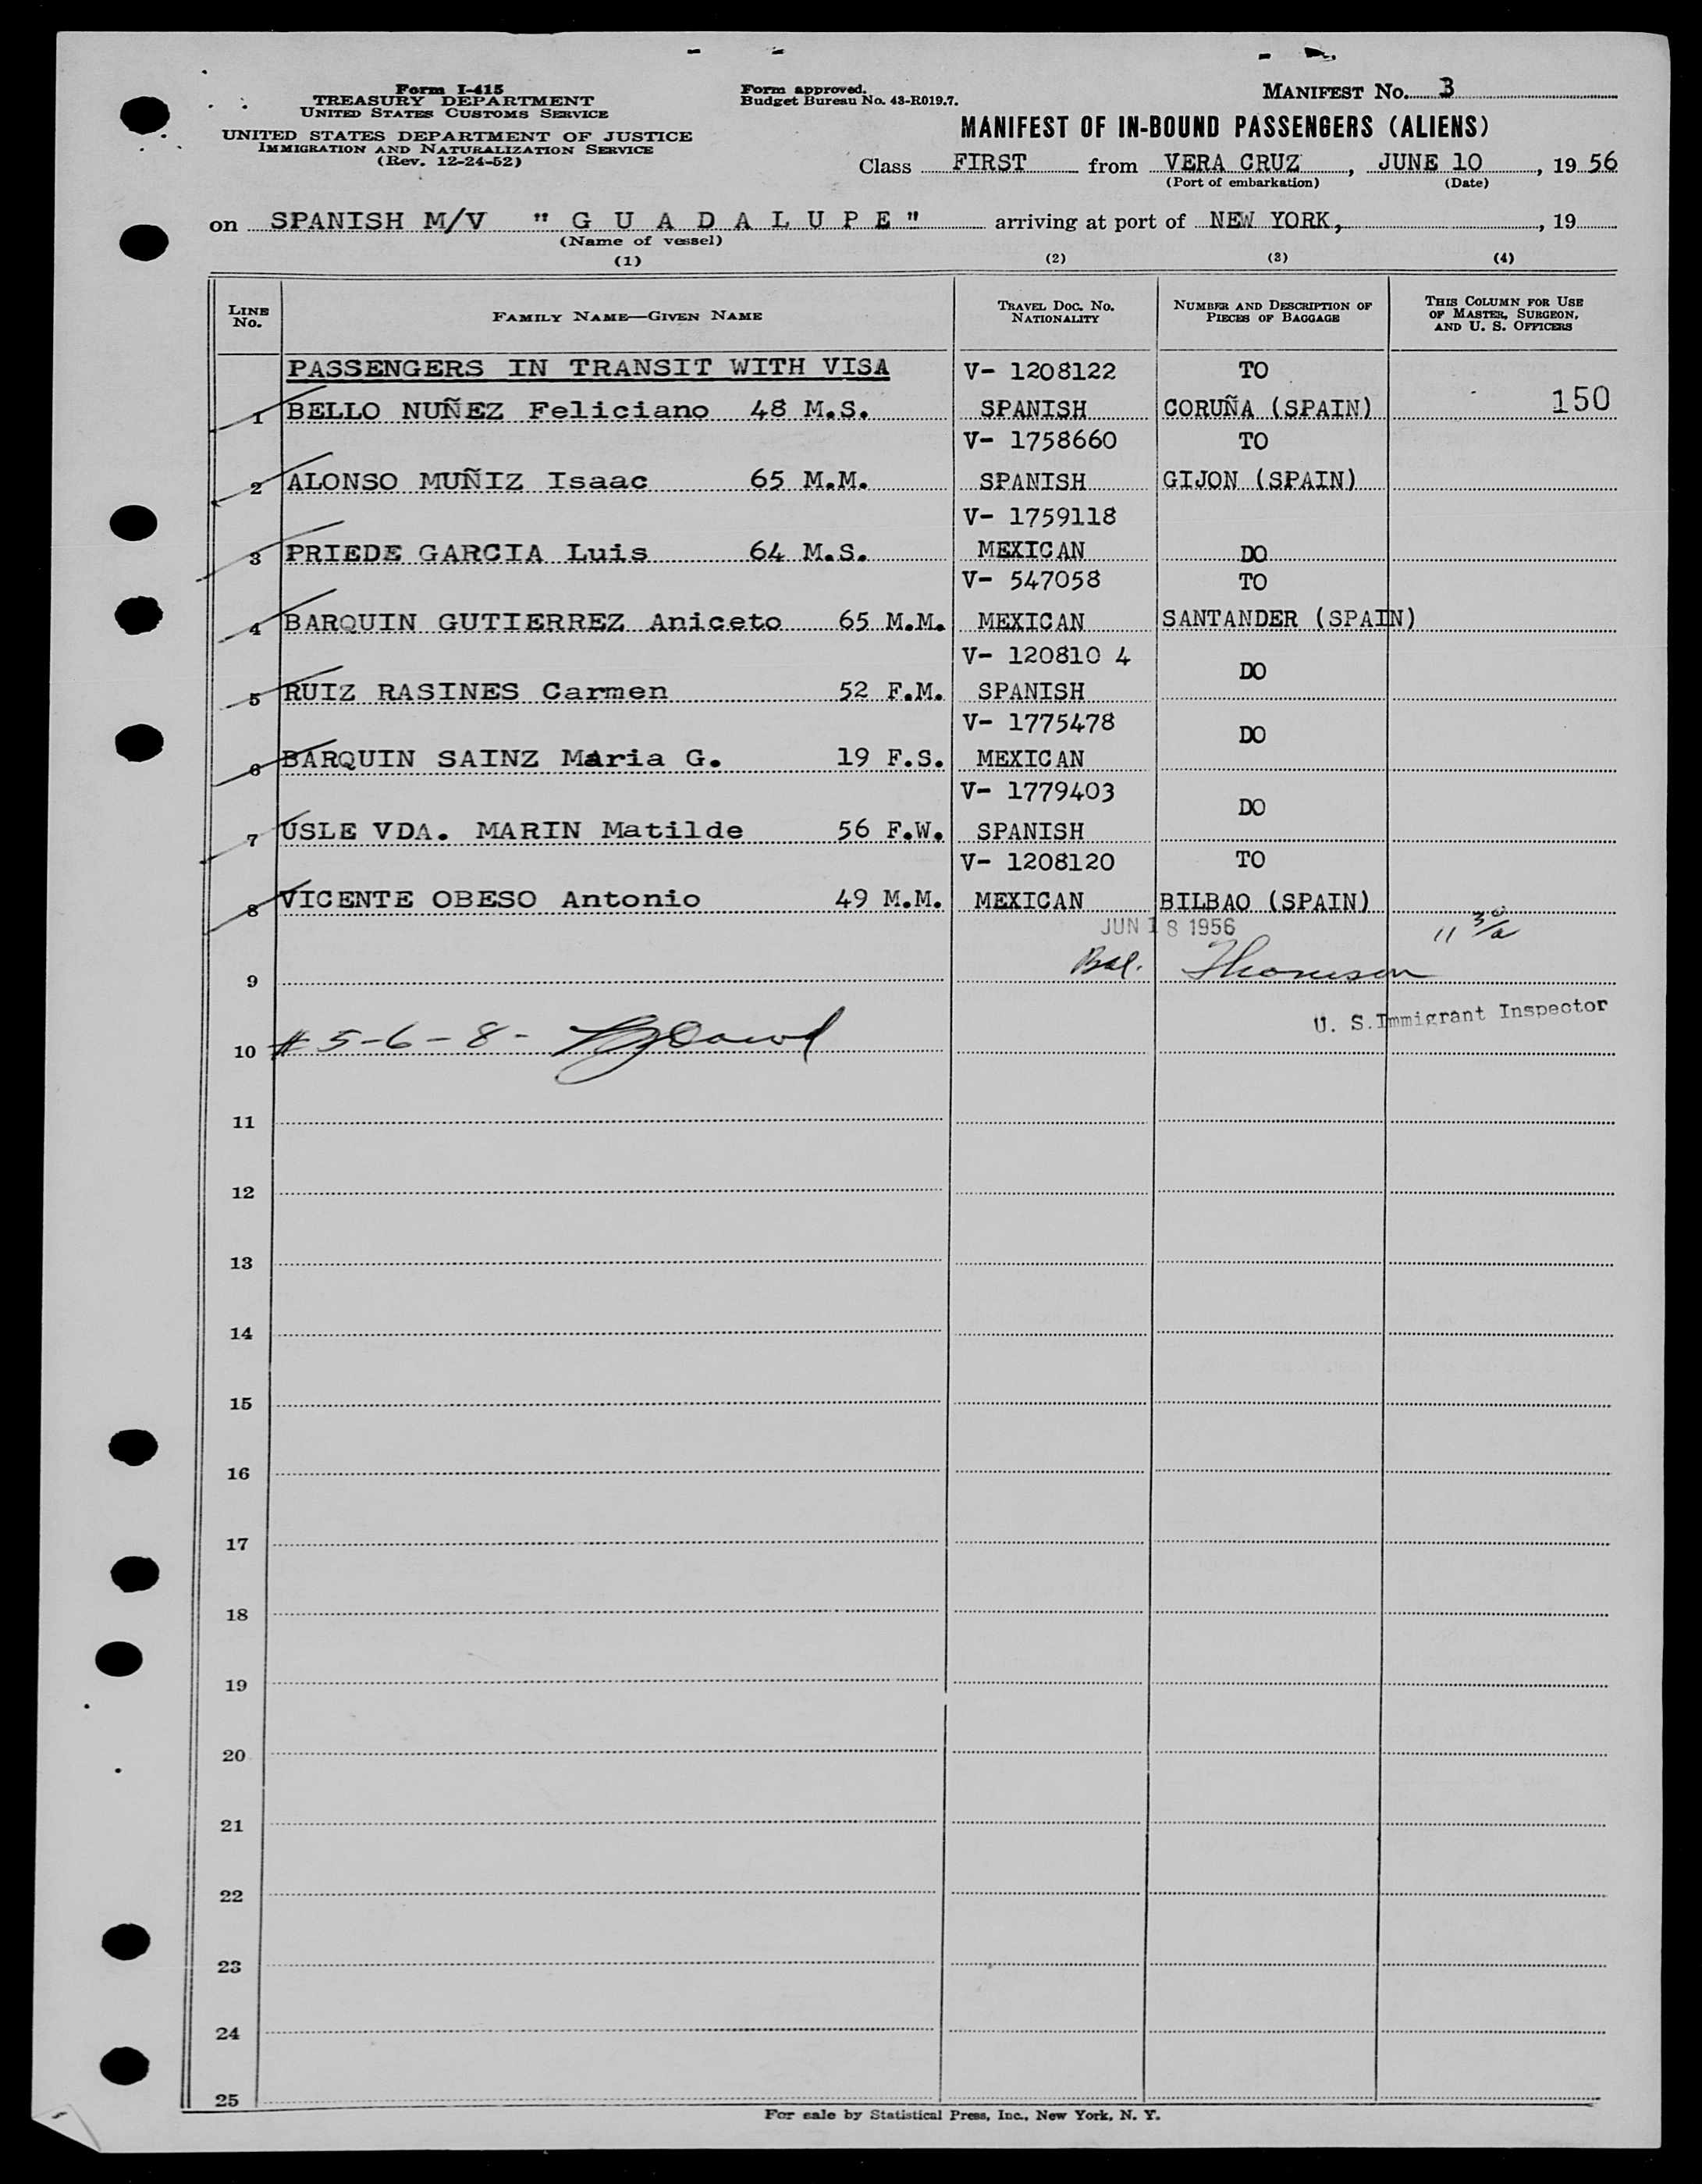 Form I-415
TREASURY DEPARTMENT
UNITED STATES CUSTOMS SERVICE
UNITED STATES DEPARTMENT OF JUSTICE
IMMIGRATION AND NATURALIZATION SERVICE
(Rev. 12-24-52)
Form approved.
Budget Bureau No. 43-R019.7.
MANIFEST No. 3
MANIFEST OF IN-BOUND PASSENGERS (ALIENS)
Class FIRST from VERA CRUZ, JUNE 10, 19 56
(Port of embarkation) (Date)
on SPANISH M/V " G U A D A L U P E " arriving at port of NEW YORK, , 19
(Name of vessel)
(1) (2) (3) (4)
LINE No. FAMILY NAME—GIVEN NAME TRAVEL DOC. No. NATIONALITY NUMBER AND DESCRIPTION OF PIECES OF BAGGAGE THIS COLUMN FOR USE OF MASTER, SURGEON, AND U. S. OFFICERS
PASSENGERS IN TRANSIT WITH VISA V- 1208122 TO
1 BELLO NUÑEZ Feliciano 48 M.S. SPANISH CORUÑA (SPAIN) 150
V- 1758660 TO
2 ALONSO MUÑIZ Isaac 65 M.M. SPANISH GIJON (SPAIN)
V- 1759118
3 PRIEDE GARCIA Luis 64 M.S. MEXICAN DO
V- 547058 TO
4 BARQUIN GUTIERREZ Aniceto 65 M.M. MEXICAN SANTANDER (SPAIN)
V- 120810 4 DO
5 RUIZ RASINES Carmen 52 F.M. SPANISH
V- 1775478 DO
6 BARQUIN SAINZ Maria G. 19 F.S. MEXICAN
V- 1779403 DO
7 USLE VDA. MARIN Matilde 56 F.W. SPANISH
V- 1208120 TO
8 VICENTE OBESO Antonio 49 M.M. MEXICAN BILBAO (SPAIN)
JUN 18 1956
9 Bal. Thomson
U. S. Immigrant Inspector
10 # 5-6-8-
11
12
13
14
15
16
17
18
19
20
21
22
23
24
25
For sale by Statistical Press, Inc., New York, N. Y.